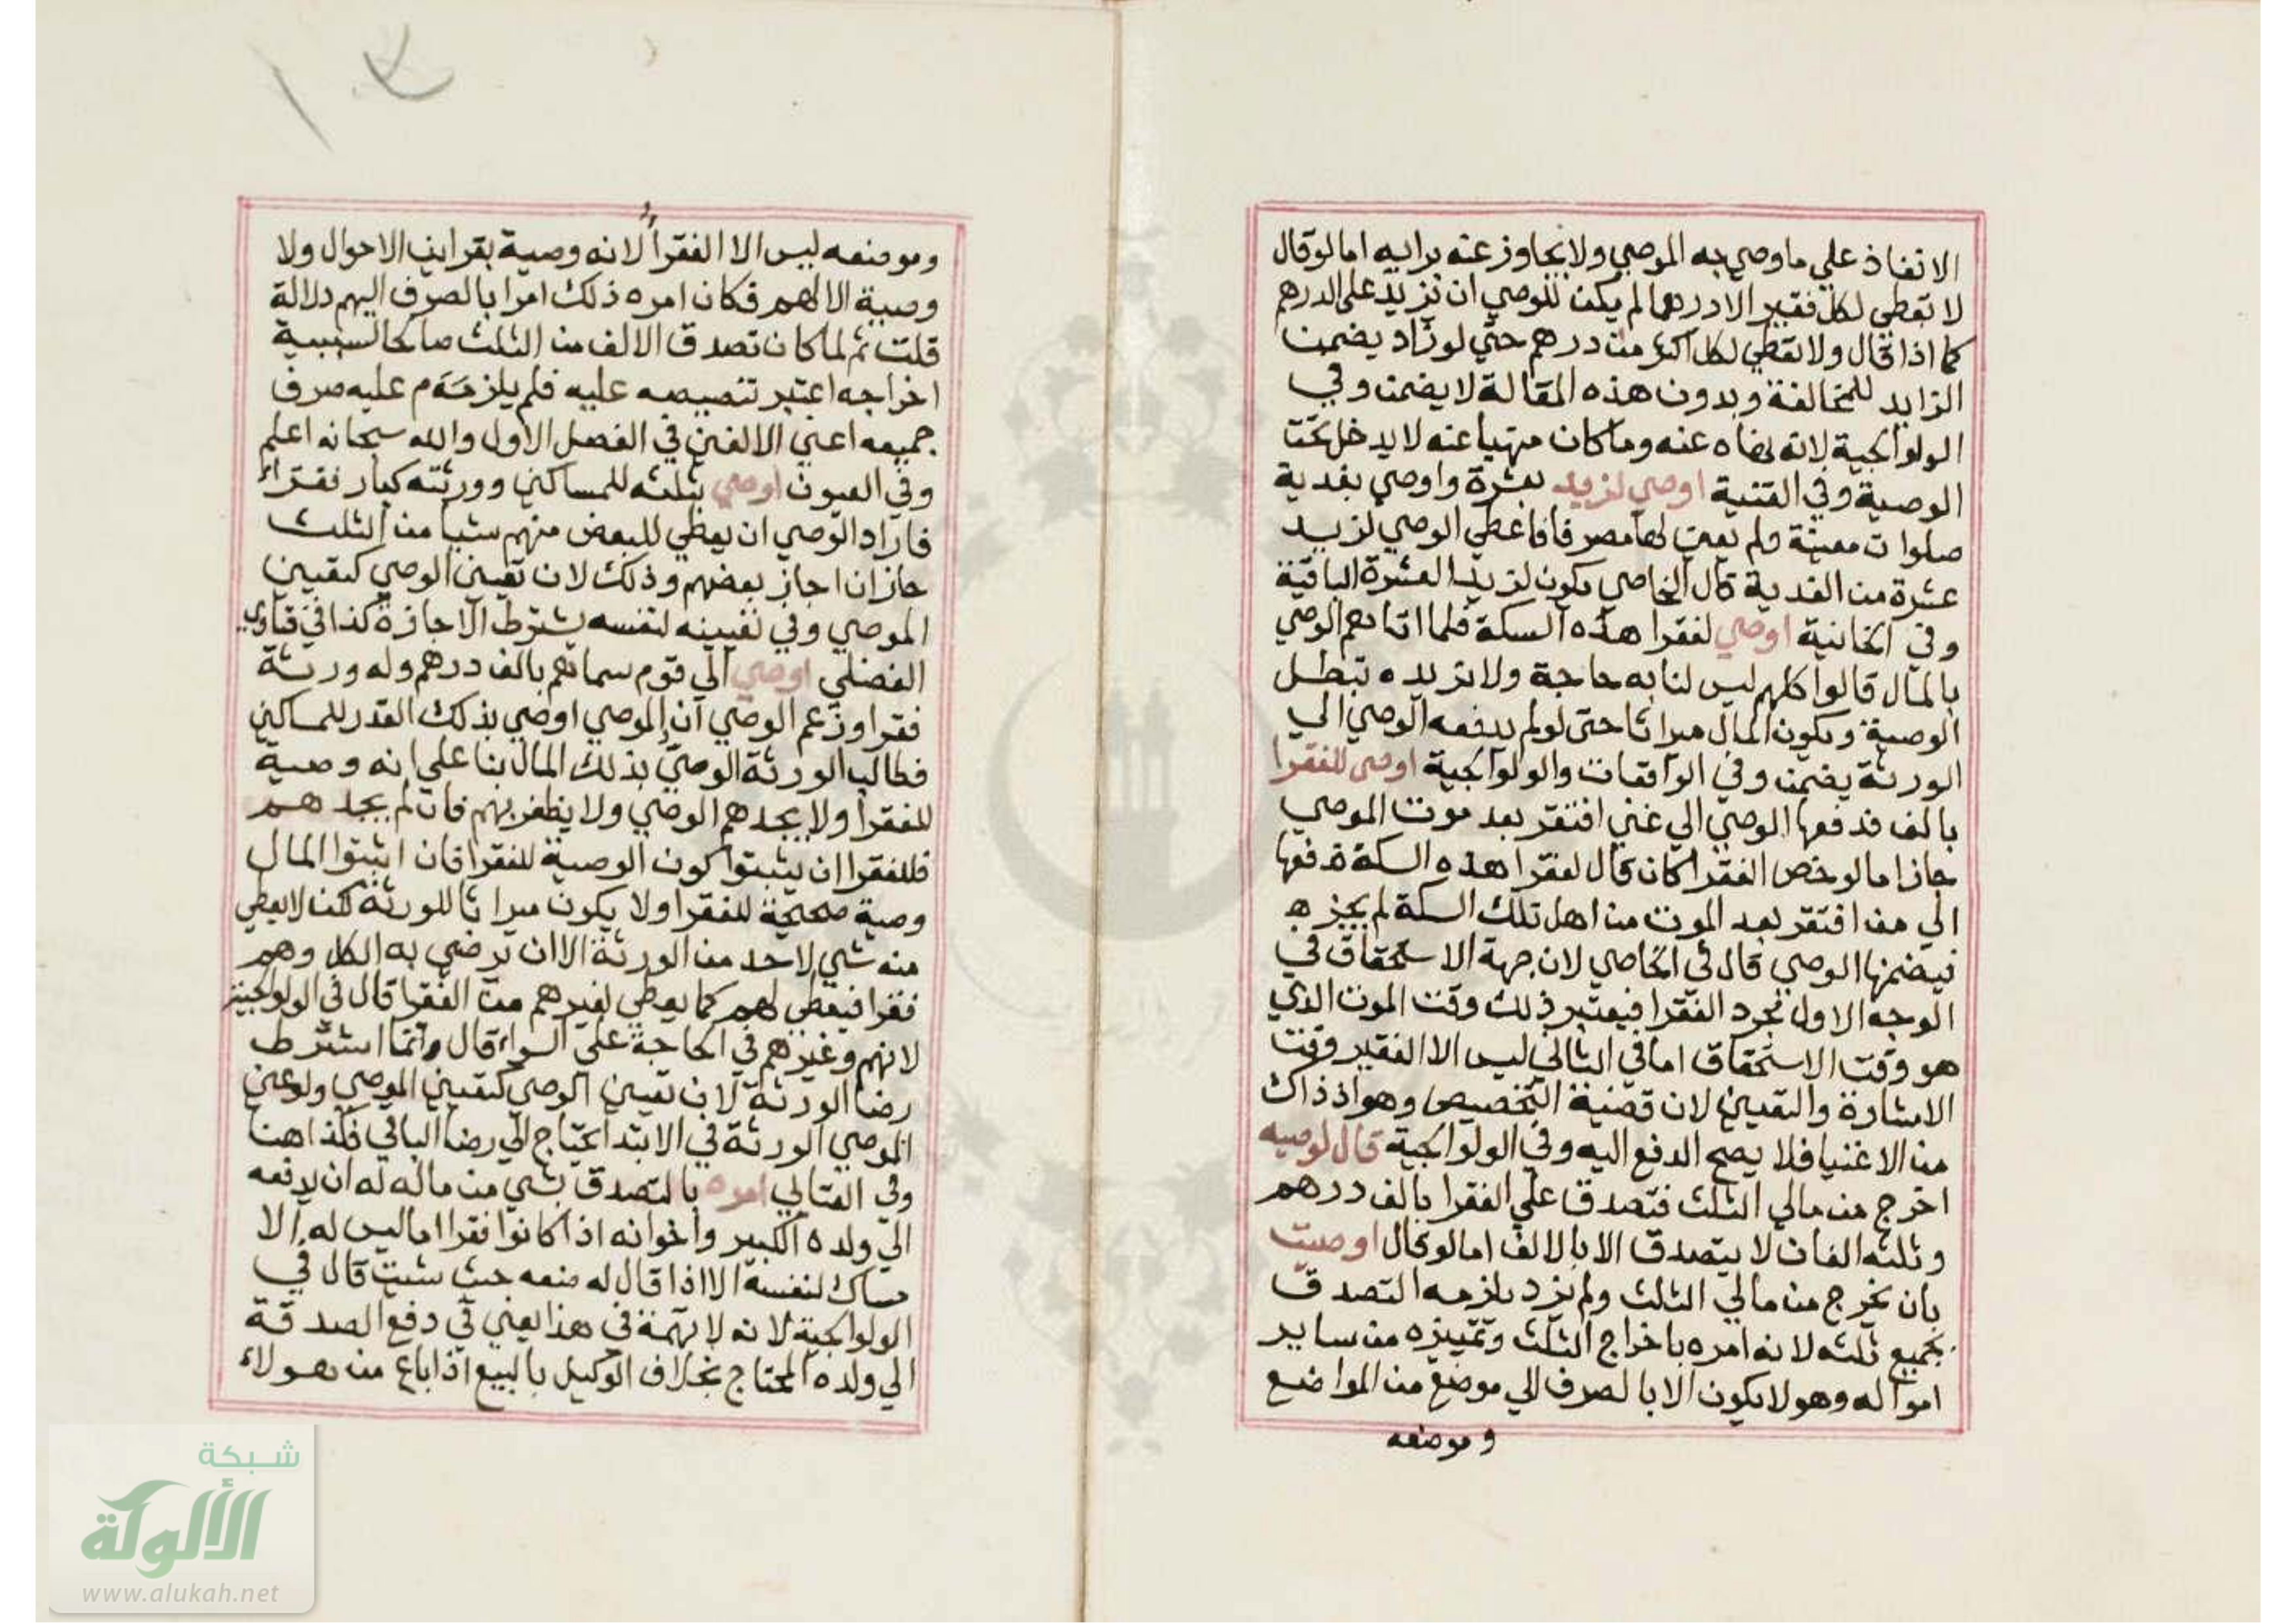 الانفاذ علي ما وصي به الموصي ولا يتجاوز عنه برايه اما لو قال
لا تعطي لكل فقير الا درهما لم يكن للوصي ان يزيد على الدرهم
كما اذا قال ولا تعطي لكل اكثر من درهم حتي لو زاد يضمن
الزايد للمخالفة وبدون هذه المقالة لا يضمن وفي
الولوالجية لانه نهاه عنه وما كان منهيا عنه لا يدخل تحت
الوصية وفي القنية اوصي لزيد بعشرة واوصي بفدية
صلوات معينة ولم يعين لها مصرفا فاعطي الوصي لزيد
عشرة من الفدية قال الخاصي يكون لزيد العشرة الباقية
وفي الخانية اوصي لفقرا هذه السكة فلما اتاهم الوصي
بالمال قالوا كلهم ليس لنا به حاجة ولا نريده تبطل
الوصية ويكون المال ميراثا حتى لو لم يدفعه الوصي الي
الورثة يضمن وفي الواقعات والولوالجية اوصى للفقرا
بالف فدفعها الوصي الي غني افتقر بعد موت الموصي
جاز اما لو خص الفقرا كان قال لفقرا هذه السكة فدفعها
الي من افتقر بعد الموت من اهل تلك السكة لم يجزه
فيضمنها الوصي قال في الخاصي لان جهة الاستحقاق في
الوجه الاول مجرد الفقرا فيعتبر ذلك وقت الموت الذي
هو وقت الاستحقاق اما في الثاني ليس الا الفقير وقت
الاشارة والتعيين لان قضية التخصيص وهو اذ ذاك
من الاغنيا فلا يصح الدفع اليه وفي الولوالجية قال لوصيه
اخرج من مالي الثلث فتصدق علي الفقرا بالف درهم
وثلثه الفان لا يتصدق الا بالالف اما لو قال اوصيت
بان يخرج من مالي الثلث ولم يزد يلزمه التصدق
بجميع ثلثه لانه امره باخراج الثلث وتمييزه من ساير
امواله وهو لا يكون الا بالصرف الي موضع من المواضع
وموضعه
وموضعه ليس الا الفقرا لانه وصية بقراين الاحوال ولا
وصية الا لهم فكان امره ذلك امرا بالصرف اليهم دلالة
قلت ثم لما كان تصدق الالف من الثلث صالحا لسببية
اخراجه اعتبر تنصيصه عليه فلم يلزم عليه صرف
جميعه اعني الالفين في الفصل الاول والله سبحانه اعلم
وفي العيون اوصي بثلثه للمساكين وورثته كبار فقراء
فاراد الوصي ان يعطي للبعض منهم شيا من الثلث
جاز ان اجاز بعضهم وذلك لان تعيين الوصي كتعيين
الموصي وفي تعيينه لنفسه يشترط الاجازة كذا في فتاوي
الفضلي اوصي الي قوم سماهم بالف درهم وله ورثة
فقرا وزعم الوصي ان الموصي اوصي بذلك القدر للمساكين
فطالب الورثة الوصي بذلك المال بنا علي انه وصية
للفقرا ولا يجدهم الوصي ولا يظفر بهم فان لم يجدهم
فللفقرا ان يثبتوا كون الوصية للفقرا فان اثبتوا المال
وصية صحيحة للفقرا ولا يكون ميراثا للورثة لكن لا يعطي
منه شي لاحد من الورثة الا ان يرضي به الكل وهم
فقرا فيعطي لهم كما يعطي لغيرهم من الفقرا قال في الولوالجية
لانهم وغيرهم في الحاجة علي السواء قال وانما اشترط
رضا الورثة لان تعيين الوصي كتعيين الموصي ولو عين
الموصي الورثة في الابتدا يحتاج الي رضا الباقي فكذا هنا
وفي العتابي امره بالتصدق بشي من ماله له ان يدفعه
الي ولده الكبير واخوانه اذا كانوا فقرا اما ليس له الا
مساك لنفسه الا اذا قال له ضعه حيث شيت قال في
الولوالجية لانه لا تهمة في هذا يعني في دفع الصدقة
الي ولده المحتاج بخلاف الوكيل بالبيع اذا باع من هولاء
شبكة
الألوكة
www.alukah.net